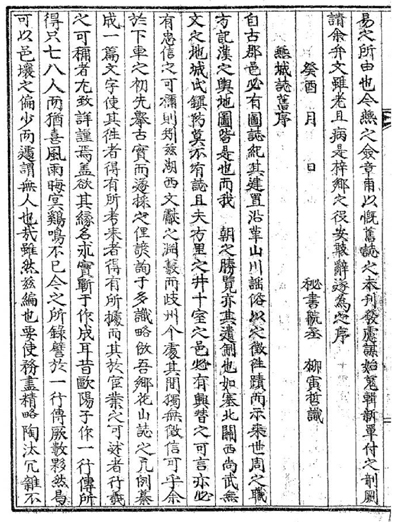 易之所由也今燕之僉章甫以慨舊誌之未刊發慮謀始鬼斬新單付之剞劂
請余弁文雖老且病是梓鄕之役安敢辭遂爲之序
癸酉 月 日 秘書院丞 柳寅哲識
燕城誌舊序
自古郡邑必有圖誌紀其建置沿革山川謠俗以之徵往蹟而示來世周之職
方記漢之輿地圖皆是也而我 朝之勝覽亦其遺例也如塞北關西尙武無
文之地城武鎭豹莫不有誌且夫方里之井十室之邑必有興替之可言亦必
有忠信之可稱則矧玆湖西文獻之淵藪而岐州介處其間獨無徵信可乎余
於下車之初先擧古實而遺採之俚諺詢于多識略倣吾鄕花山誌之凡例纂
成一篇文字使其往者得有所考來者得有所據而其於官業之可述者行義
之可稱者尤致詳謹焉蓋欲其緣名求實蘄于作成耳昔歐陽子作一行傳所
得只七八人而猶喜風雨晦冥鷄鳴不已今之所錄譬於一行傳厥數夥然易
可以邑壤之偏少而遽謂無人也哉雖然玆編也要使務盡精略陶汰冗雜不